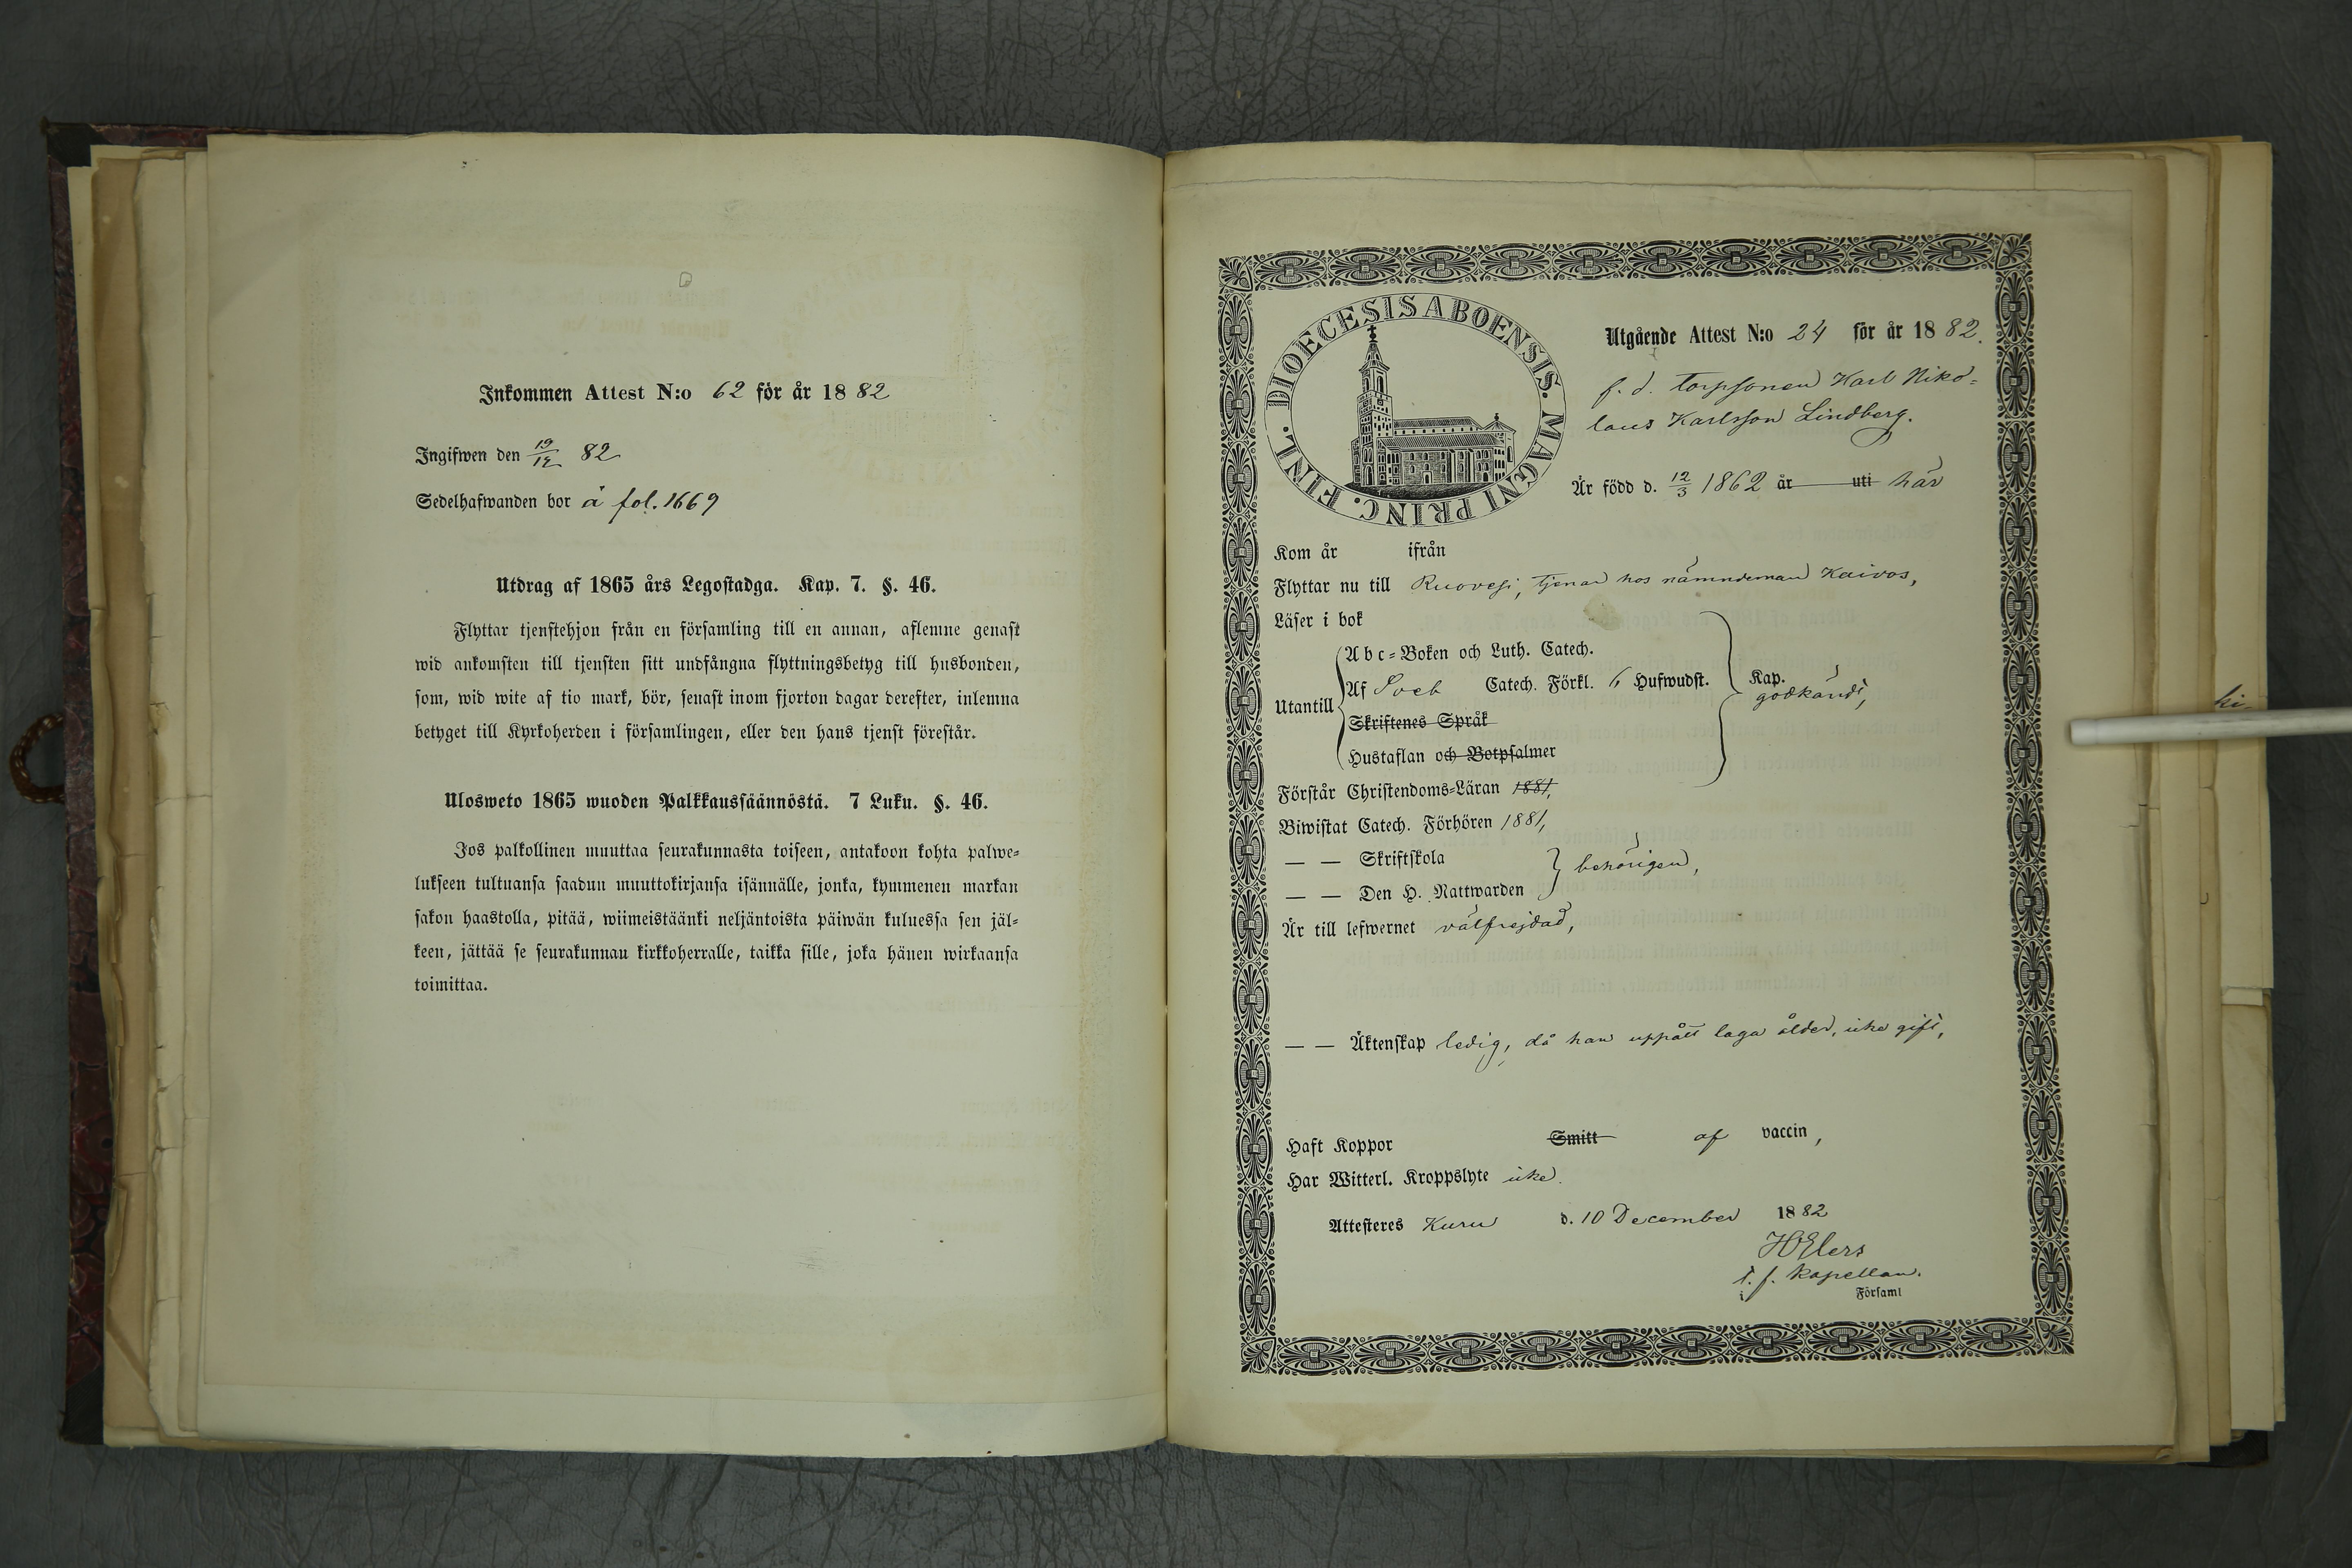 Inkommen Attest N:o 62 för år 1882
Ingifwen den 19/12 82
Sedelhafwanden bor å fol. 1669
Utdrag af 1865 års Legostadga. Kap. 7. §. 46.
Flyttar tjenstehjon från en församling till en annan, aflemne genast
wid ankomsten till tjensten sitt undfångna flyttningsbetyg till husbonden,
som, wid wite af tio mark, bör, senast inom fjorton dagar derefter, inlemna
betyget till Kyrkoherden i församlingen, eller den hans tjenst förestår.
Ulosweto 1865 wuoden Palkkaussäännöstä. 7 Luku. §. 46.
Jos palkollinen muuttaa seurakunnasta toiseen, antakoon kohta palwe-
lukseen tultuansa saadun muuttokirjansa isännälle, jonka, kymmenen markan
sakon haastolla, pitää, wiimeistäänki neljäntoista päiwän kuluessa sen jäl-
keen, jättää se seurakunnan kirkkoherralle, taikka sille, joka hänen wirkaansa
toimittaa.
DIOECESIS ABOENSIS. MAGNI PRINC. FINL.
Utgående Attest N:o 24 för år 1882.
f. d. torpsonen Karl Niko-
laus Karlsson Lindberg.
Är född d. 12/3 1862 år uti här
Kom år ifrån
Flyttar nu till Ruovesi, tjenar hos nämndeman Kaivos,
Läser i bok
Utantill
Abc-Boken och Luth. Catech.
Af Sveb Catech. Förkl. 6 Hufwudst.
Skriftenes Språk
Hustaflan och Botpsalmer
Kap.
godkändt,
Förstår Christendoms-Läran 1881,
Biwistat Catech. Förhören 1881,
— — Skriftskola
— — Den H. Nattwarden
behörigen,
Är till lefwernet välfrejdad,
— — Äktenskap ledig, då han uppnått laga ålder, icke gift,
Haft Koppor Smitt af vaccin,
Har Witterl. Kroppslyte icke.
Attesteres Kuru d. 10 December 1882
H Elers
t. f. kapellan.
i Församl
hi-